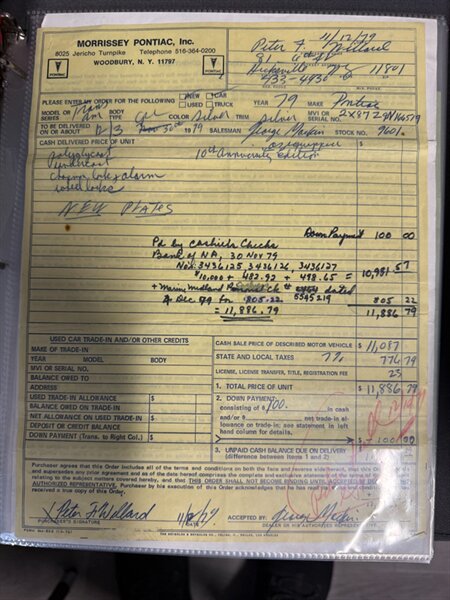 MORRISSEY PONTIAC, Inc.
8025 Jericho Turnpike Telephone 516-364-0200
WOODBURY, N. Y. 11797
PONTIAC
PONTIAC
11/12/79
Peter F. Willard
81
Hicksville 11801
433-4936
PLEASE ENTER MY ORDER FOR THE FOLLOWING NEW CAR
USED TRUCK
YEAR 79 MAKE Pontiac
MODEL OR SERIES Trans Am BODY TYPE Cpe COLOR Silver TRIM Silver MVI OR SERIAL NO.
TO BE DELIVERED ON OR ABOUT Nov 30 1979 SALESMAN George STOCK NO. 9601
CASH DELIVERED PRICE OF UNIT as equipped
polyglycoat 10th Anniversary Edition
undercoat
Chapman lock & alarm
wheel locks
NEW PLATES
Down Payment 100 00
Pd by cashiers Checks
Bank of NA, 30 Nov 79
No's. 3436125, 3436126, 3436127
$10,000 + 482.92 + 498.65 = 10,981 57
+ Marine Midland Ck # dated
Dec 79 for 805.22 5545219 805 22
= 11,886.79 11,886 79
USED CAR TRADE-IN AND/OR OTHER CREDITS
MAKE OF TRADE-IN
YEAR MODEL BODY
MVI OR SERIAL NO.
BALANCE OWED TO
ADDRESS
USED TRADE-IN ALLOWANCE $
BALANCE OWED ON TRADE-IN $
NET ALLOWANCE ON USED TRADE-IN $
DEPOSIT OR CREDIT BALANCE $
DOWN PAYMENT (Trans. to Right Col.) $
CASH SALE PRICE OF DESCRIBED MOTOR VEHICLE $ 11,087
STATE AND LOCAL TAXES 7% 776 79
LICENSE, LICENSE TRANSFER, TITLE, REGISTRATION FEE 23
1. TOTAL PRICE OF UNIT $ 11,886 79
2. DOWN PAYMENT
consisting of $ 100. in cash
and/or $ net trade-in al-
lowance on trade-in: see statement in left
hand column for details.
100 00
3. UNPAID CASH BALANCE DUE ON DELIVERY
(difference between items 1 and 2)
Purchaser agrees that this Order includes all of the terms and conditions on both the face and reverse side hereof, that this
and supersedes any prior agreement and as of the date hereof comprises the complete and exclusive statement
relating to the subject matters covered hereby, and that THIS ORDER SHALL NOT BECOME BINDING UNTIL ACCEPTED BY
AUTHORIZED REPRESENTATIVE. Purchaser by his execution of this Order acknowledges that he has read its terms and con
received a true copy of this Order.
Peter F Willard 11/12/79 ACCEPTED BY: George
PURCHASER'S SIGNATURE DATE DEALER OR HIS AUTHORIZED REPRESENTATIVE